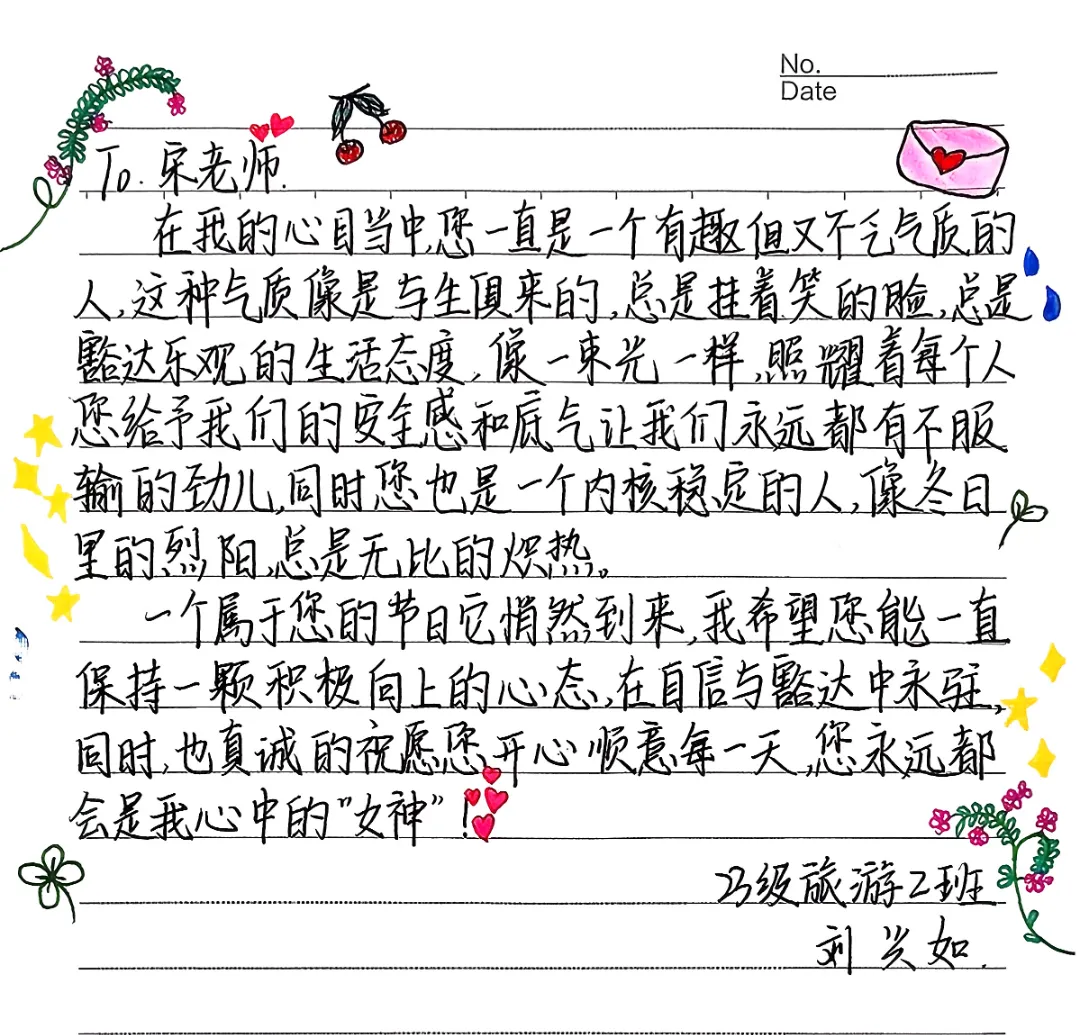 No.
Date
To. 宋老师.
在我的心目当中,您一直是一个有趣但又不乏气质的
人,这种气质像是与生俱来的,总是挂着笑的脸,总是
豁达乐观的生活态度,像一束光一样,照耀着每个人
您给予我们的安全感和底气让我们永远都有不服
输的劲儿,同时您也是一个内核稳定的人,像冬日
里的烈阳,总是无比的炽热。
一个属于您的节日它悄然到来,我希望您能一直
保持一颗积极向上的心态,在自信与豁达中永驻,
同时,也真诚的祝愿您,开心顺意每一天,您永远都
会是我心中的"女神"!
23级旅游2班
刘兴如.